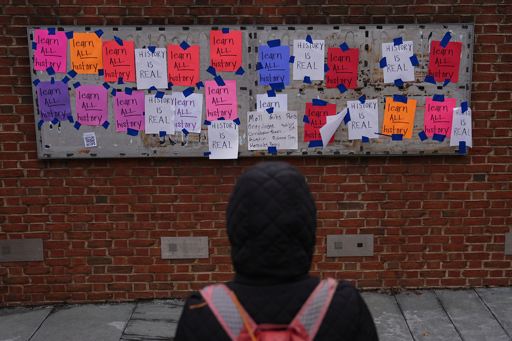 learn
ALL
history
learn
ALL
history
learn
ALL
history
HISTORY
IS
REAL
learn
ALL
history
learn
ALL
history
learn
ALL
history
HISTORY
IS
REAL
learn
ALL
history
HISTORY
IS
REAL
learn
ALL
history
learn
ALL
history
learn
ALL
history
learn
ALL
history
HISTORY
IS
REAL
learn
ALL
history
learn
ALL
history
HISTORY
IS
REAL
learn
ALL
learn
ALL
history
HISTORY
IS
REAL
learn
ALL
history
learn
ALL
history
HISTORY
IS
REAL